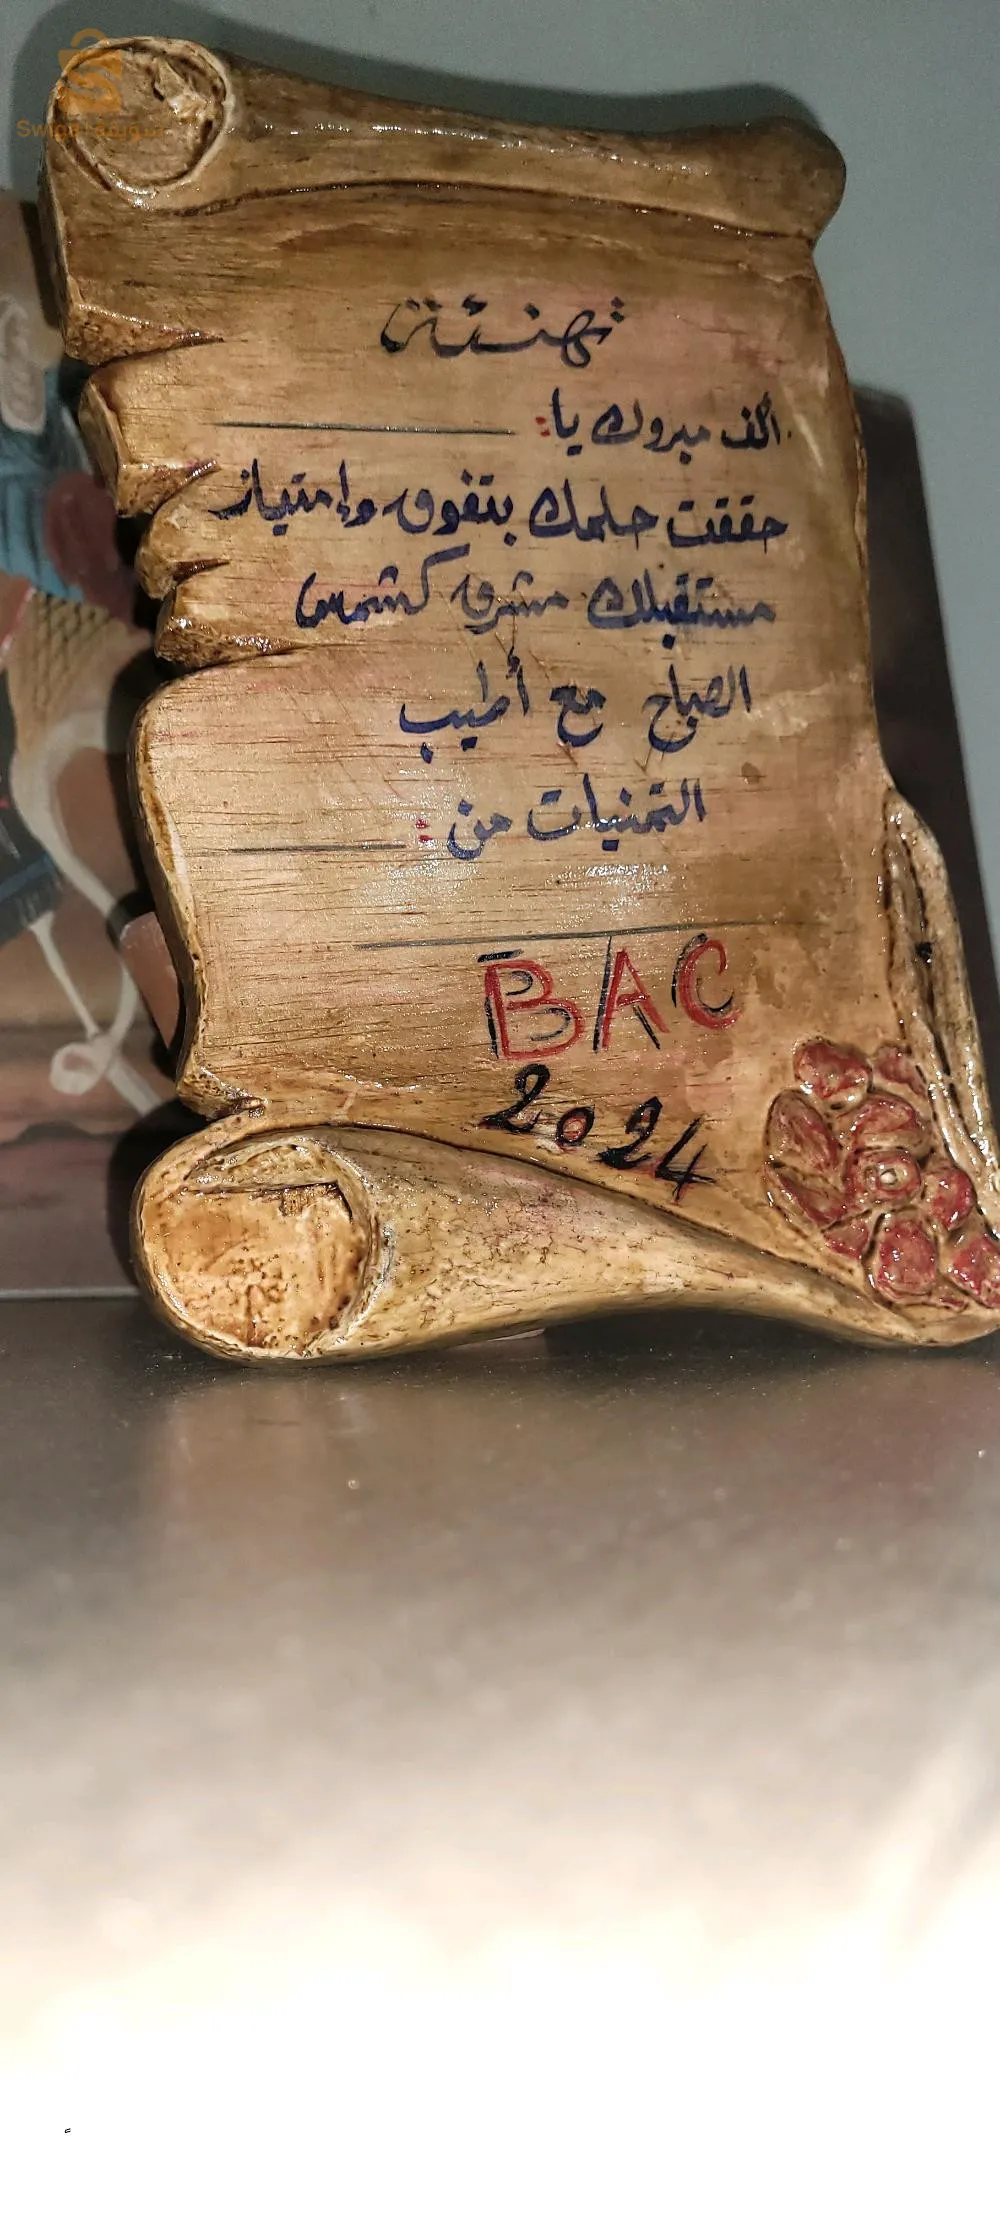 Swiqa سويقة
تهنئة
ألف مبروك يا:
حققت حلمك بتفوق وإمتياز
مستقبلك مشرق كشمس
الصباح مع أطيب
التمنيات من:
BAC
2024